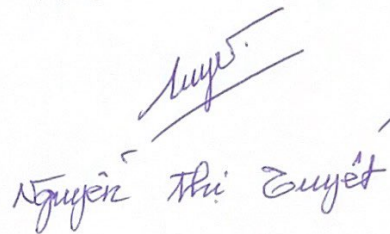 Tuyết
Nguyễn Thị Tuyết